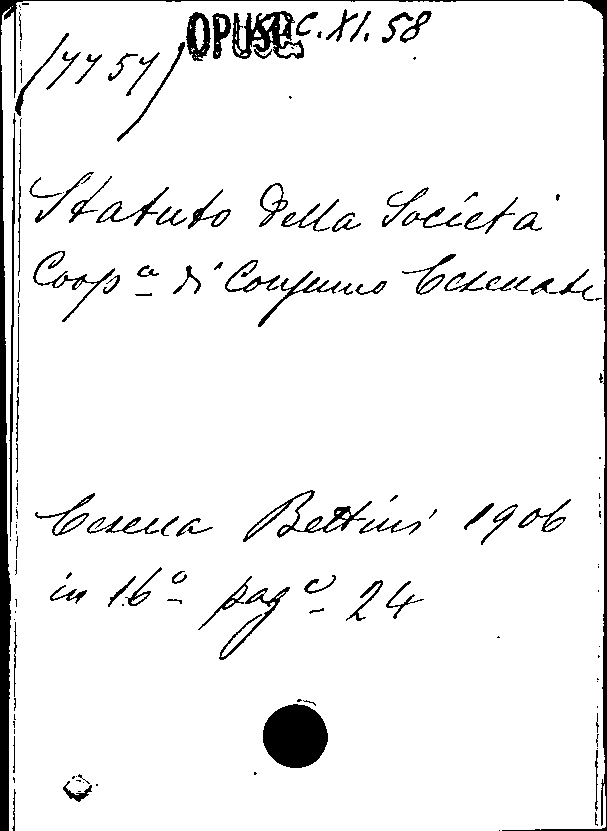 (7757) OPUSC. C.XI.58
Statuto della Società
Coopª di Consumo Cesenate
Cesena Bettini 1906
in 16º page 24